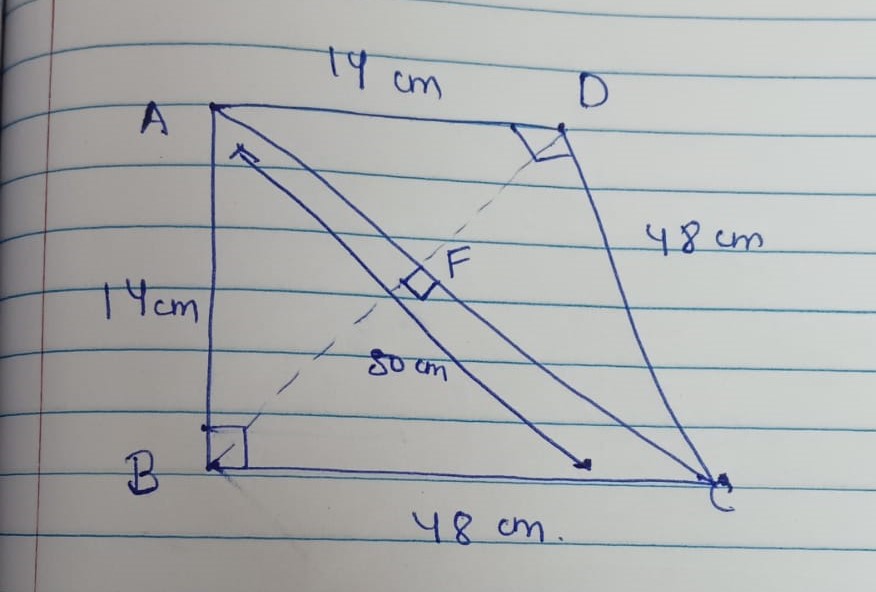 14 cm
A
D
48 cm
F
14cm
50 cm
B
C
48 cm.